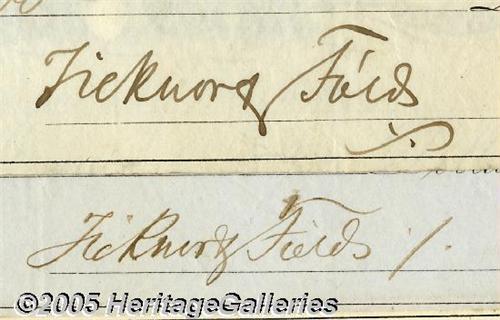 Ticknor & Fields
Ticknor & Fields /.
©2005 HeritageGalleries